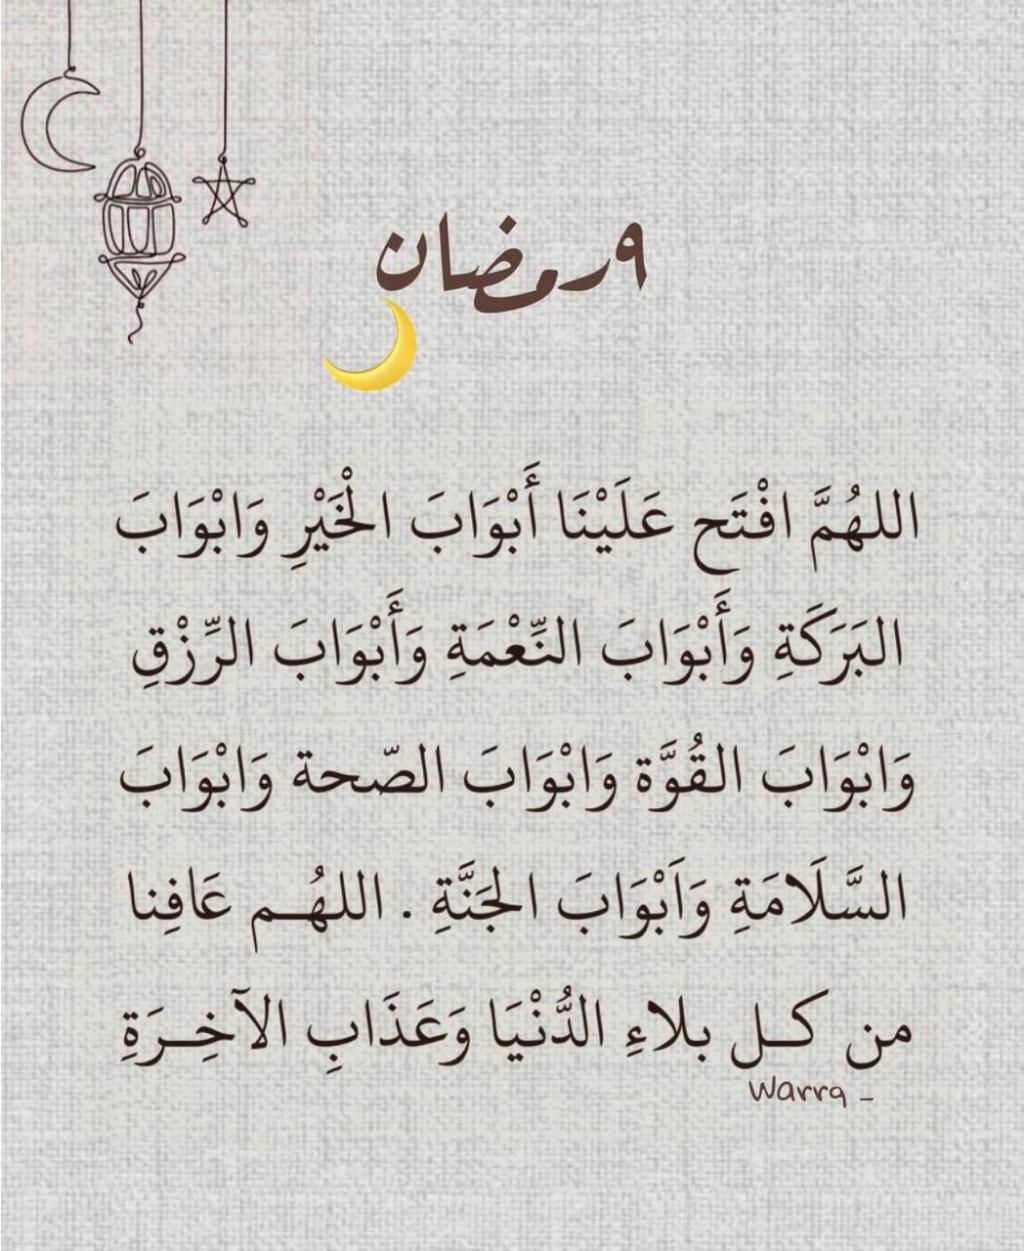 ٩ رمضان
اللهُمَّ افْتَح عَلَيْنَا أَبْوَابَ الْخَيْرِ وَابْوَابَ
البَرَكَةِ وَأَبْوَابَ النِّعْمَةِ وَأَبْوَابَ الرِّزْقِ
وَابْوَابَ القُوَّة وَابْوَابَ الصّحة وَابْوَابَ
السَّلَامَةِ وَاَبْوَابَ الجَنَّةِ . اللهُـم عَافِنا
من كـل بلاءِ الدُّنْيَا وَعَذَابِ الآخِـرَةِ
Warrq _